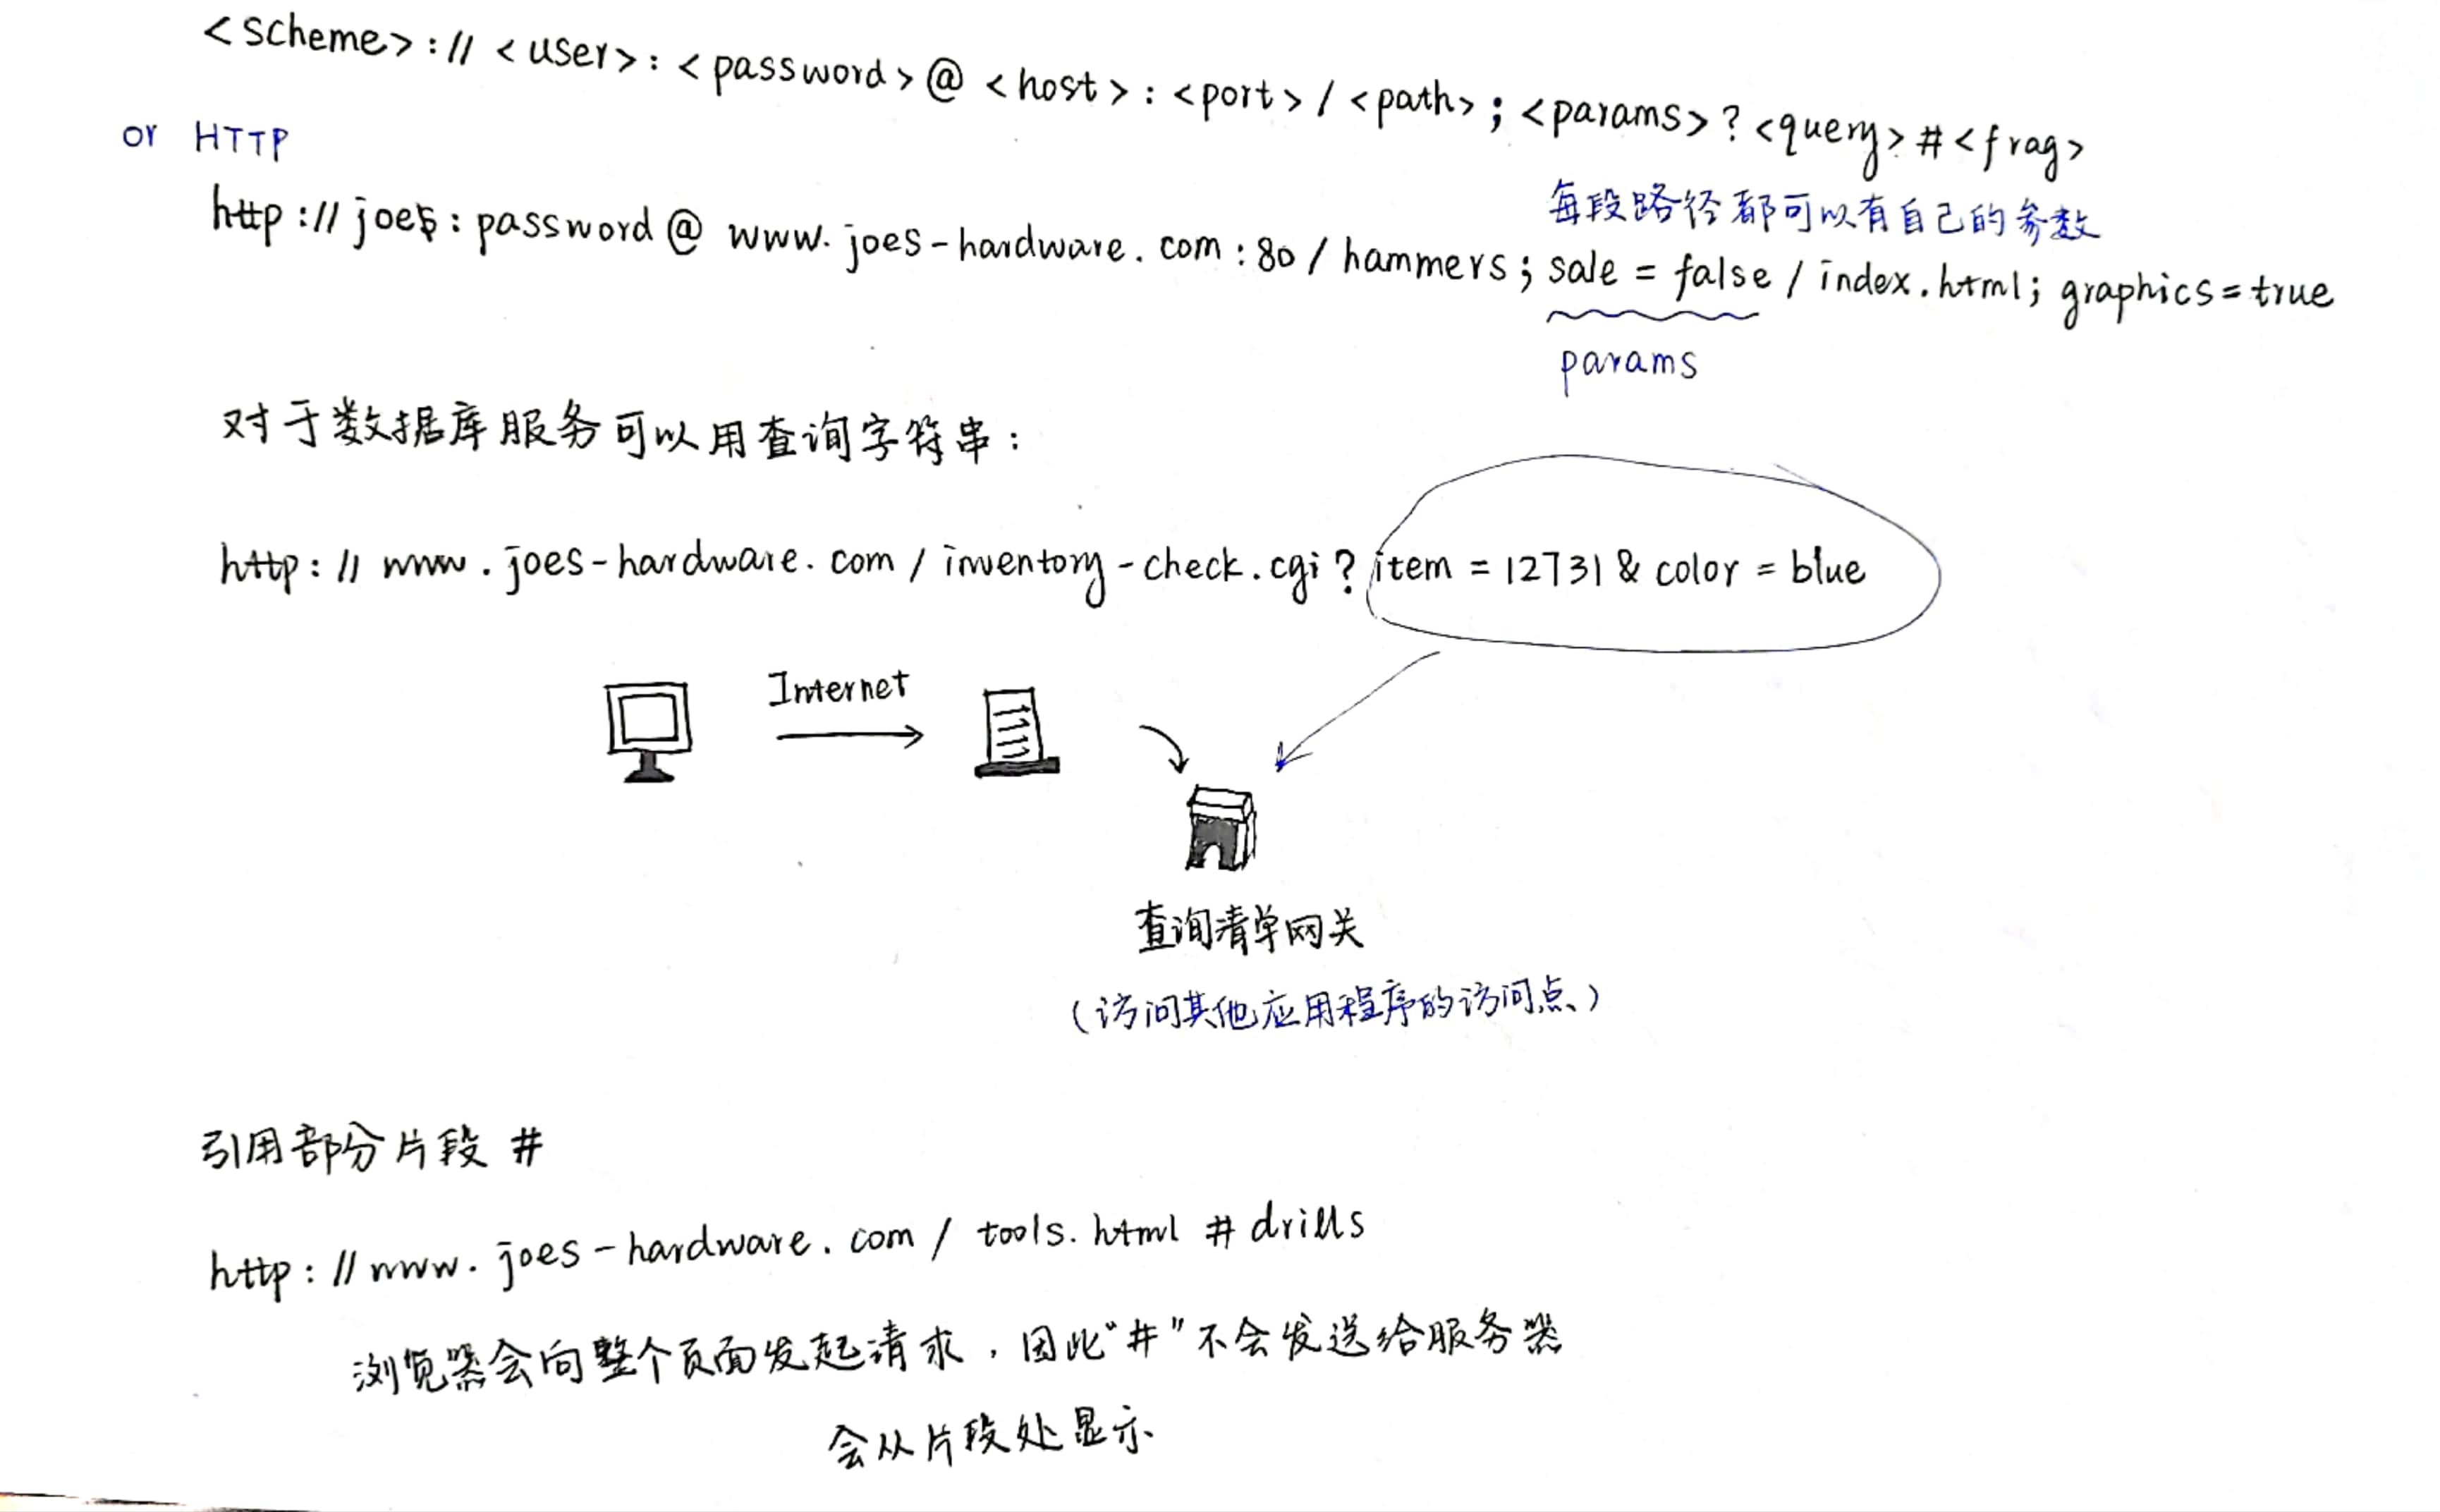 <scheme>://<user>:<password>@<host>:<port>/<path>;<params>?<query>#<frag>
or HTTP
每段路径都可以有自己的参数
http://joes:password@www.joes-hardware.com:80/hammers;sale=false/index.html;graphics=true
params
对于数据库服务可以用查询字符串:
http://www.joes-hardware.com/inventory-check.cgi?item=12731&color=blue
Internet
查询清单网关
(访问其他应用程序的访问点)
引用部分片段 #
http://www.joes-hardware.com/tools.html#drills
浏览器会向整个页面发起请求,因此"#"不会发送给服务器
会从片段处显示